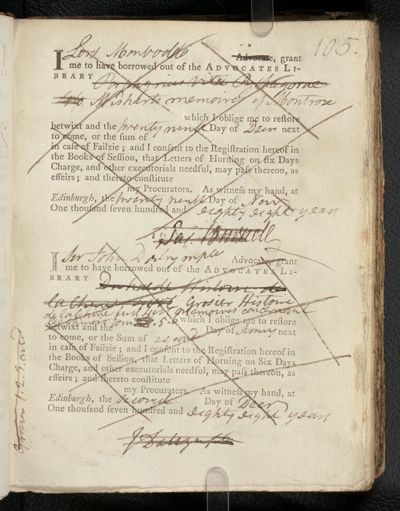 105.
I Lord Monboddo Advocate, grant
me to have borrowed out of the ADVOCATES LI-
BRARY Porphyrius Vita Pythagorae
4to Wisharts memoirs of Montrose
which I oblige me to restore
betwixt and the twenty ninth Day of Decr next
to come, or the sum of
in case of Failzie; and I consent to the Registration hereof in
the Books of Session, that Letters of Horning on six Days
Charge, and other executorials needful, may pass thereon, as
effeirs; and thereto constitute
my Procurators. As witness my hand, at
Edinburgh, the twenty ninth Day of Novr
One thousand seven hundred and eighty eight years
Jas. Burnett
I Sir John Dalrymple Advocate, grant
me to have borrowed out of the ADVOCATES LI-
BRARY Histoire de
la Chine Grosier Histoire
de la Chine Memoires
Tom 5.6 which I oblige me to restore
betwixt and the Day of next
to come, or the Sum of
in case of Failzie; and I consent to the Registration hereof in
the Books of Session, that Letters of Horning on Six Days
Charge, and other executorials needful, may pass thereon, as
effeirs; and thereto constitute
my Procurators. As witness my hand, at
Edinburgh, the second Day of Decr
One thousand seven hundred and eighty eight years
J Dalrymple
1.2.3